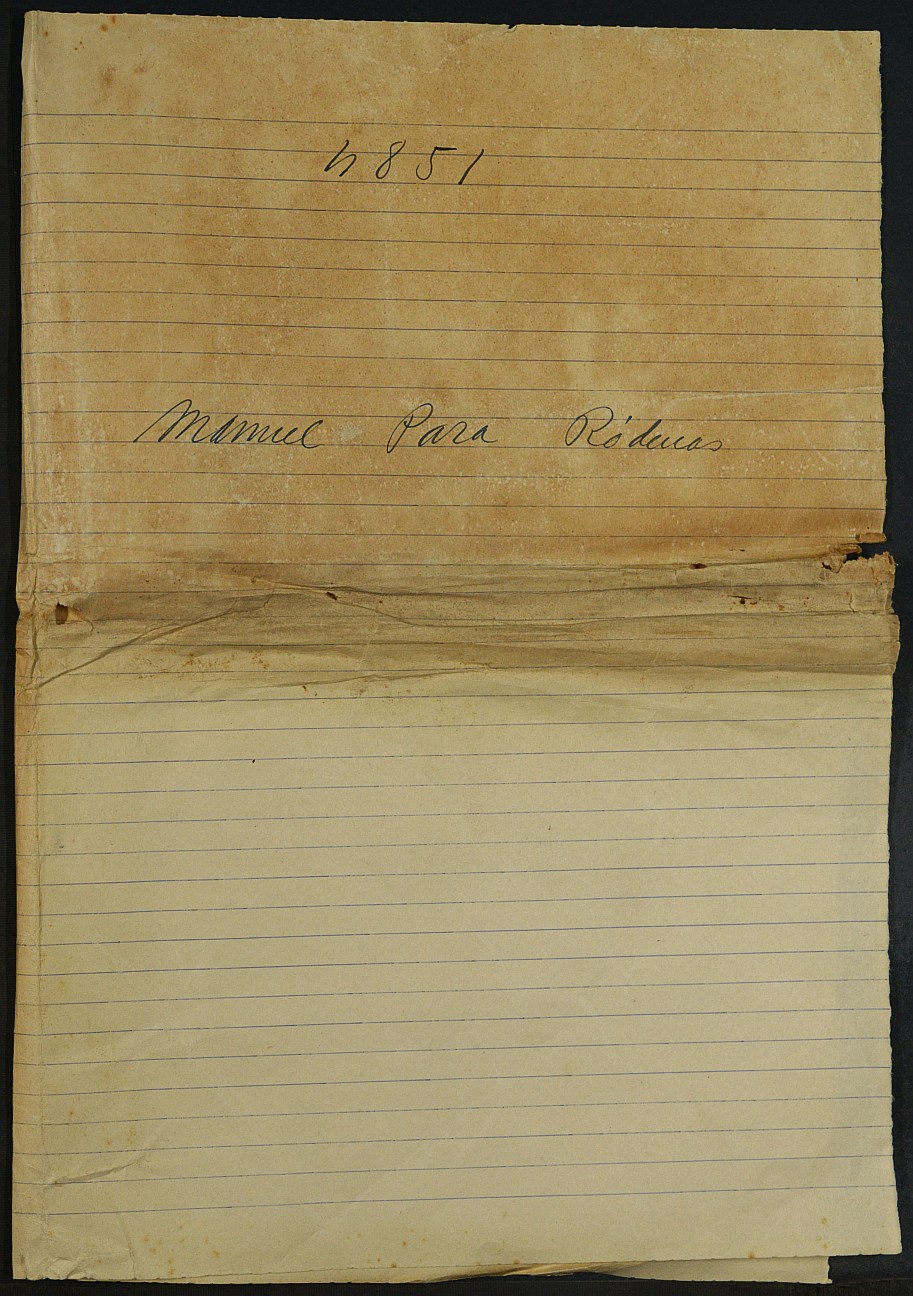 4851
Manuel Para Ródenas